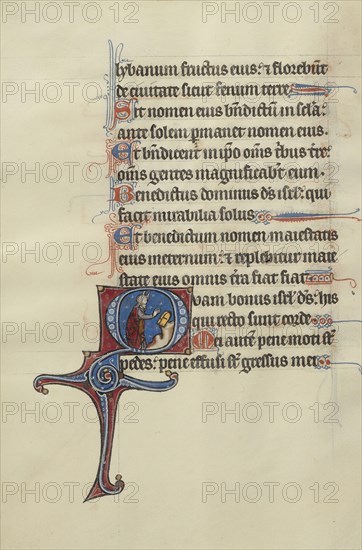 lybanum fructus eius: & florebūt
de ciuitate sicut fenum terre.
Sit nomen eius bn̄dictū in sc̄la:
ante solem ꝑmanet nomen eius.
Et bn̄dicent in ipo om̄s tribus tre:
om̄s gentes magnificabt̄ eum.
Benedictus dominus ds̄ isrl̄: qui
facit mirabilia solus.
Et benedictum nomen maiestatis
eius ineternum: & replebitur maie
state eius omnis tr̄a fiat fiat.
Quam bonus isrl̄ ds̄: his
qui recto sunt corde.
Mei autē pene moti st̄
pedes: pene effusi st̄ gressus mei.
PHOTO 12